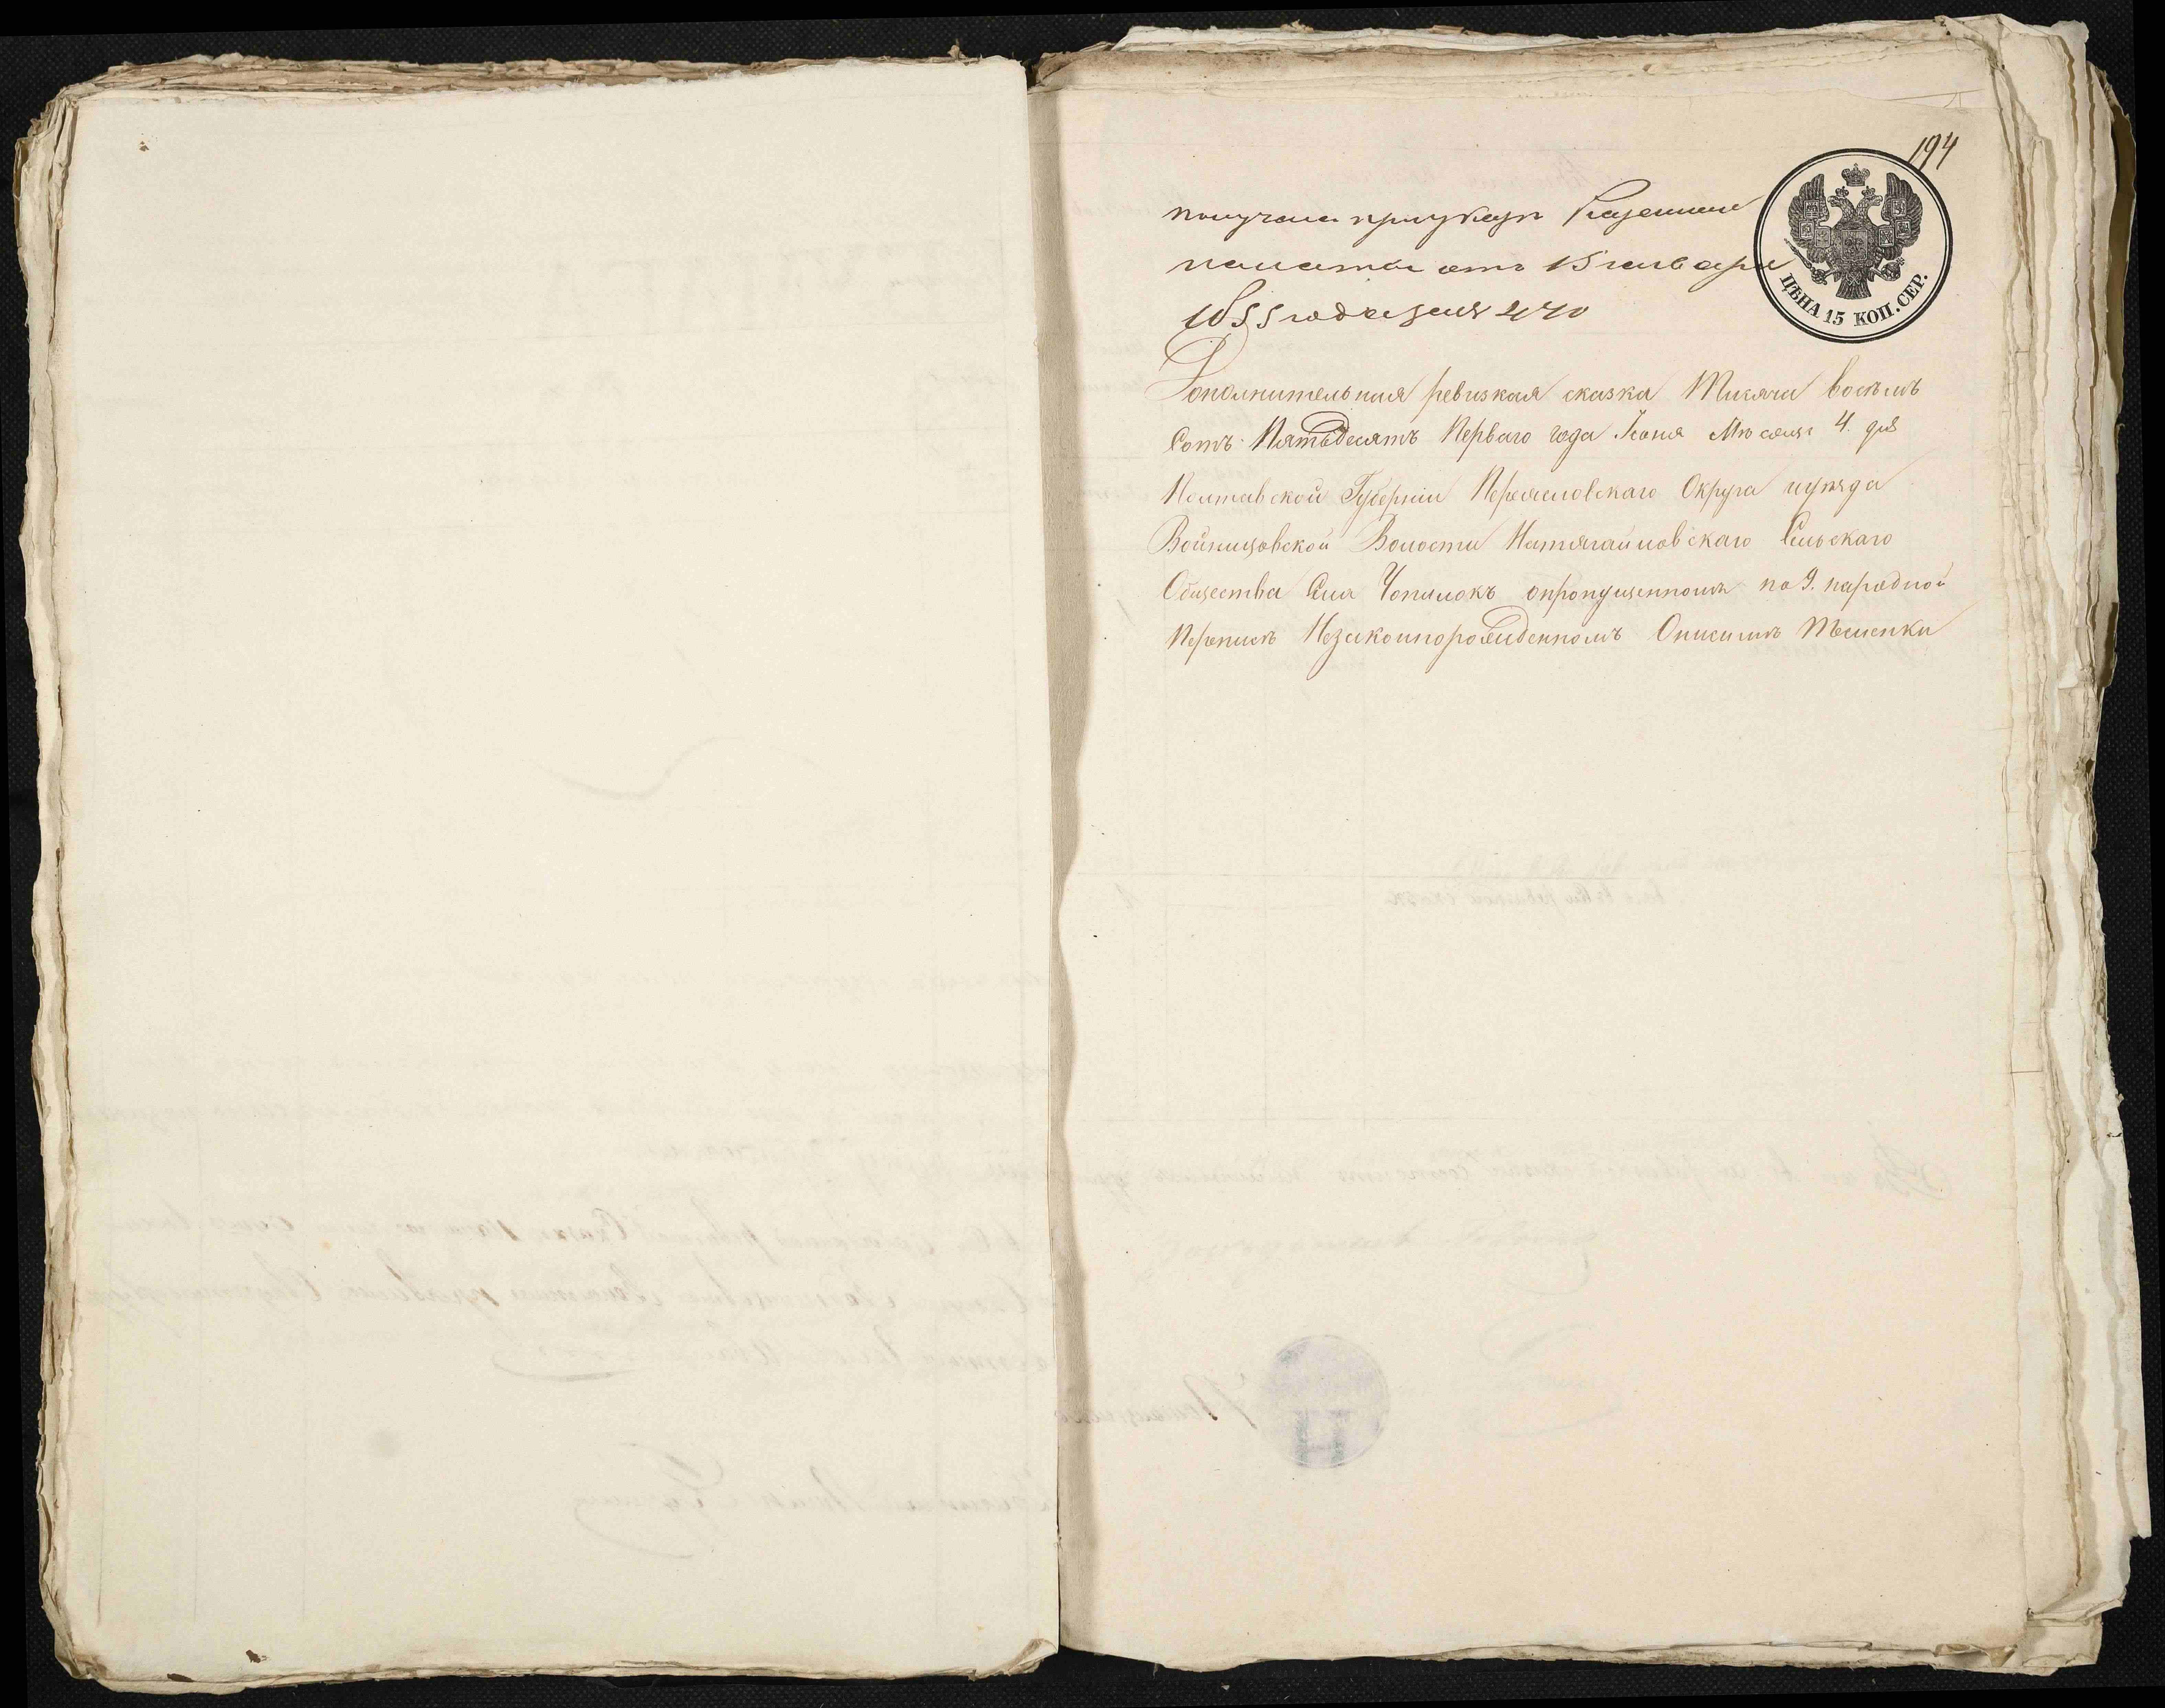 194
получена при указе Казенной
палаты отъ 15 января
1855 года за № 240
ЦѢНА 15 КОП. СЕР.
Дополнительная ревизкая сказка Тисяча восѣмъ
Сотъ Пятьдесятъ Перваго года Іюня Мѣсяця 4. дня
Полтавской Губерніи Переясловскаго Округа и уѣзда
Войницовской Волости Натягайловскаго Сельскаго
Общества Села Чопилокъ опропущенномъ по 9. народной
Переписѣ Незаконнорожденномъ Онисимѣ